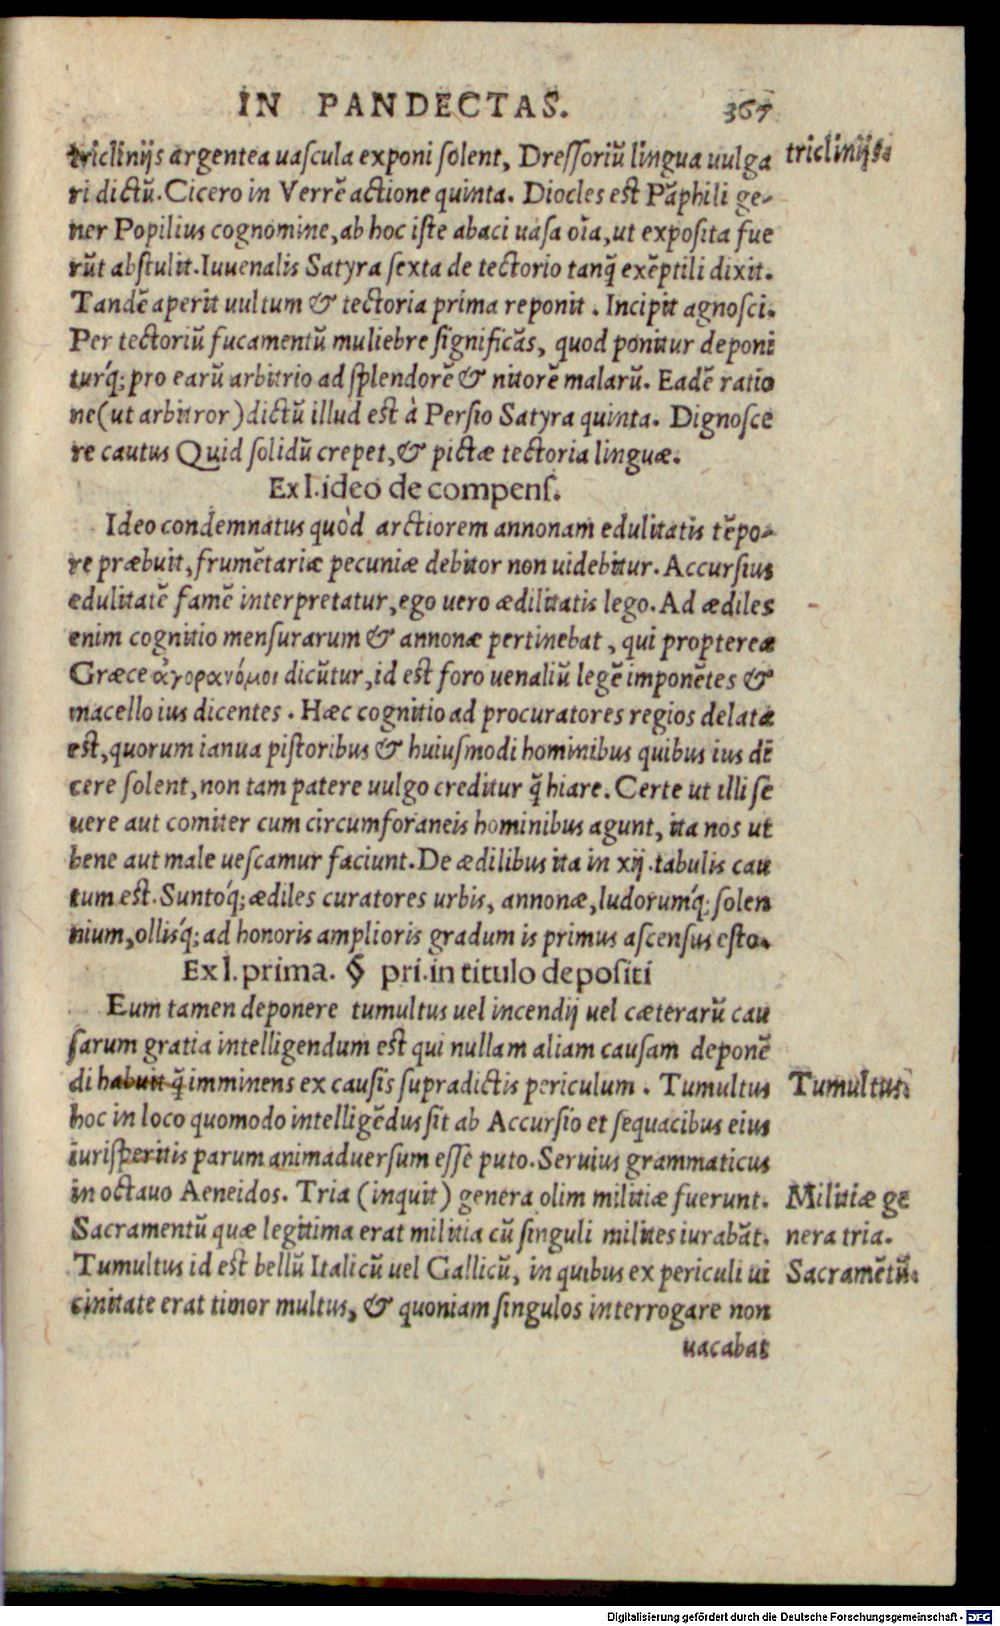 IN PANDECTAS. 367
triclinijs argentea uascula exponi solent, Dressoriũ lingua uulga triclinijs.
ri dictũ. Cicero in Verrẽ actione quinta. Diocles est Pãphili ge-
ner Popilius cognomine, ab hoc iste abaci uasa oĩa, ut exposita fue
rũt abstulit. Iuuenalis Satyra sexta de tectorio tanq̃ exẽptili dixit.
Tandẽ aperit uultum & tectoria prima reponit. Incipit agnosci.
Per tectoriũ fucamentũ muliebre significãs, quod ponitur deponi
turq́; pro earũ arbitrio ad splendorẽ & nitorẽ malarũ. Eadẽ ratio
ne (ut arbitror) dictũ illud est à Persio Satyra quinta. Dignosce
re cautus Quid solidũ crepet, & pictæ tectoria linguæ.
Ex l. ideo de compens.
Ideo condemnatus quòd arctiorem annonam edulitatis tẽpo-
re præbuit, frumẽtariæ pecuniæ debitor non uidebitur. Accursius
edulitatẽ famẽ interpretatur, ego uero ædilitatis lego. Ad ædiles
enim cognitio mensurarum & annonæ pertinebat, qui propterea
Græce ἀγορανόμοι dicũtur, id est foro uenaliũ legẽ imponẽtes &
macello ius dicentes. Hæc cognitio ad procuratores regios delata
est, quorum ianua pistoribus & huiusmodi hominibus quibus ius dĩ
cere solent, non tam patere uulgo creditur q̃ hiare. Certe ut illi se
uere aut comiter cum circumforaneis hominibus agunt, ita nos ut
bene aut male uescamur faciunt. De ædilibus ita in xij. tabulis cau
tum est. Suntóq; ædiles curatores urbis, annonæ, ludorumq́; solen
nium, ollisq́; ad honoris amplioris gradum is primus ascensus esto.
Ex l. prima. § pri. in titulo depositi
Eum tamen deponere tumultus uel incendij uel cæterarũ cau
sarum gratia intelligendum est qui nullam aliam causam deponẽ
di habuit q̃ imminens ex causis supradictis periculum. Tumultus Tumultus.
hoc in loco quomodo intelligẽdus sit ab Accursio et sequacibus eius
iurisperitis parum animaduersum esse puto. Seruius grammaticus
in octauo Aeneidos. Tria (inquit) genera olim militiæ fuerunt. Militiæ ge
Sacramentũ quæ legitima erat militia cũ singuli milites iurabãt. nera tria.
Tumultus id est bellũ Italicũ uel Gallicũ, in quibus ex periculi ui Sacramẽtũ.
cinitate erat timor multus, & quoniam singulos interrogare non
uacabat
Digitalisierung gefördert durch die Deutsche Forschungsgemeinschaft - DFG